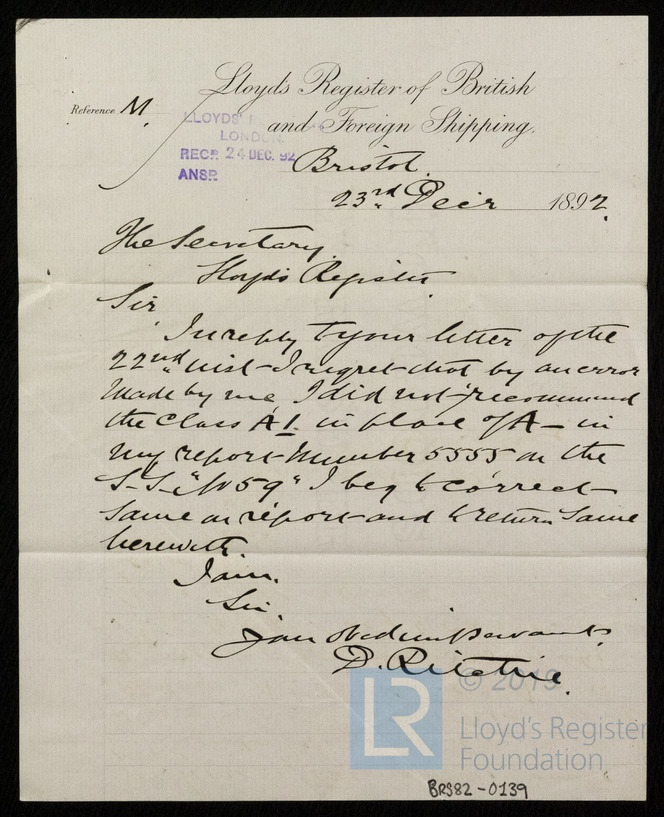 Lloyd's Register of British
and Foreign Shipping.
Reference M.
LLOYDS'
LONDON
RECD. 24 DEC. 92
ANSD.
Bristol.
23rd Decr 1892.
The Secretary
Lloyd's Register
Sir,
In reply to your letter of the
22nd inst I regret that by an error
made by me I did not recommend
the Class A1 in place of A- in
my report Number 5555 on the
S.S. "No 59" I beg to correct
same on report and to return same
herewith.
I am.
Sir
Your obedient Servant.
D. Ritchie.
© 2019
LR
Lloyd's Register
Foundation
BRS82-0139